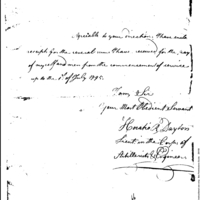 agreeable to your directions I have made
receipt for the several sums I have received for the pay
of myself and men from the commencement of service
up to the 1st of July 1795.
I am Sir
Your Most Obedient Servant
Horatio R Dayton
Lieut in the Corps of
Artillerists & Engineers